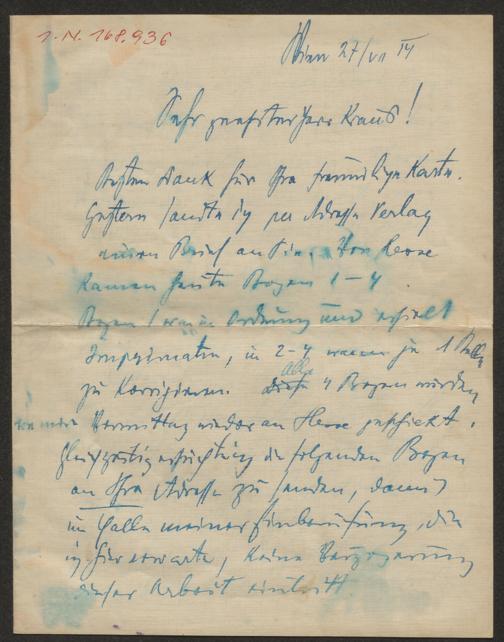 I.N. 168.936
Wien 27/VII 14
Sehr geehrter Herr Kraus!
Besten Dank für Ihre freundliche Karte.
Gestern sandte ich per Adresse Verlag
einen Brief an Sie. Von Hesse
kamen heute Bogen 1–4.
Bogen 1 war in Ordnung und erhielt
Imprimatur, in 2–4 waren je 1 Stelle
zu korrigieren. alle 4 Bogen wurden
Vormittag wieder an Hesse geschickt.
Gleichzeitig ersuchte ich die folgenden Bogen
an Ihre Adresse zu senden, damit
im Falle meiner Einberufung, die
ich hier erwarte, keine Verzögerung
dieser Arbeit eintritt